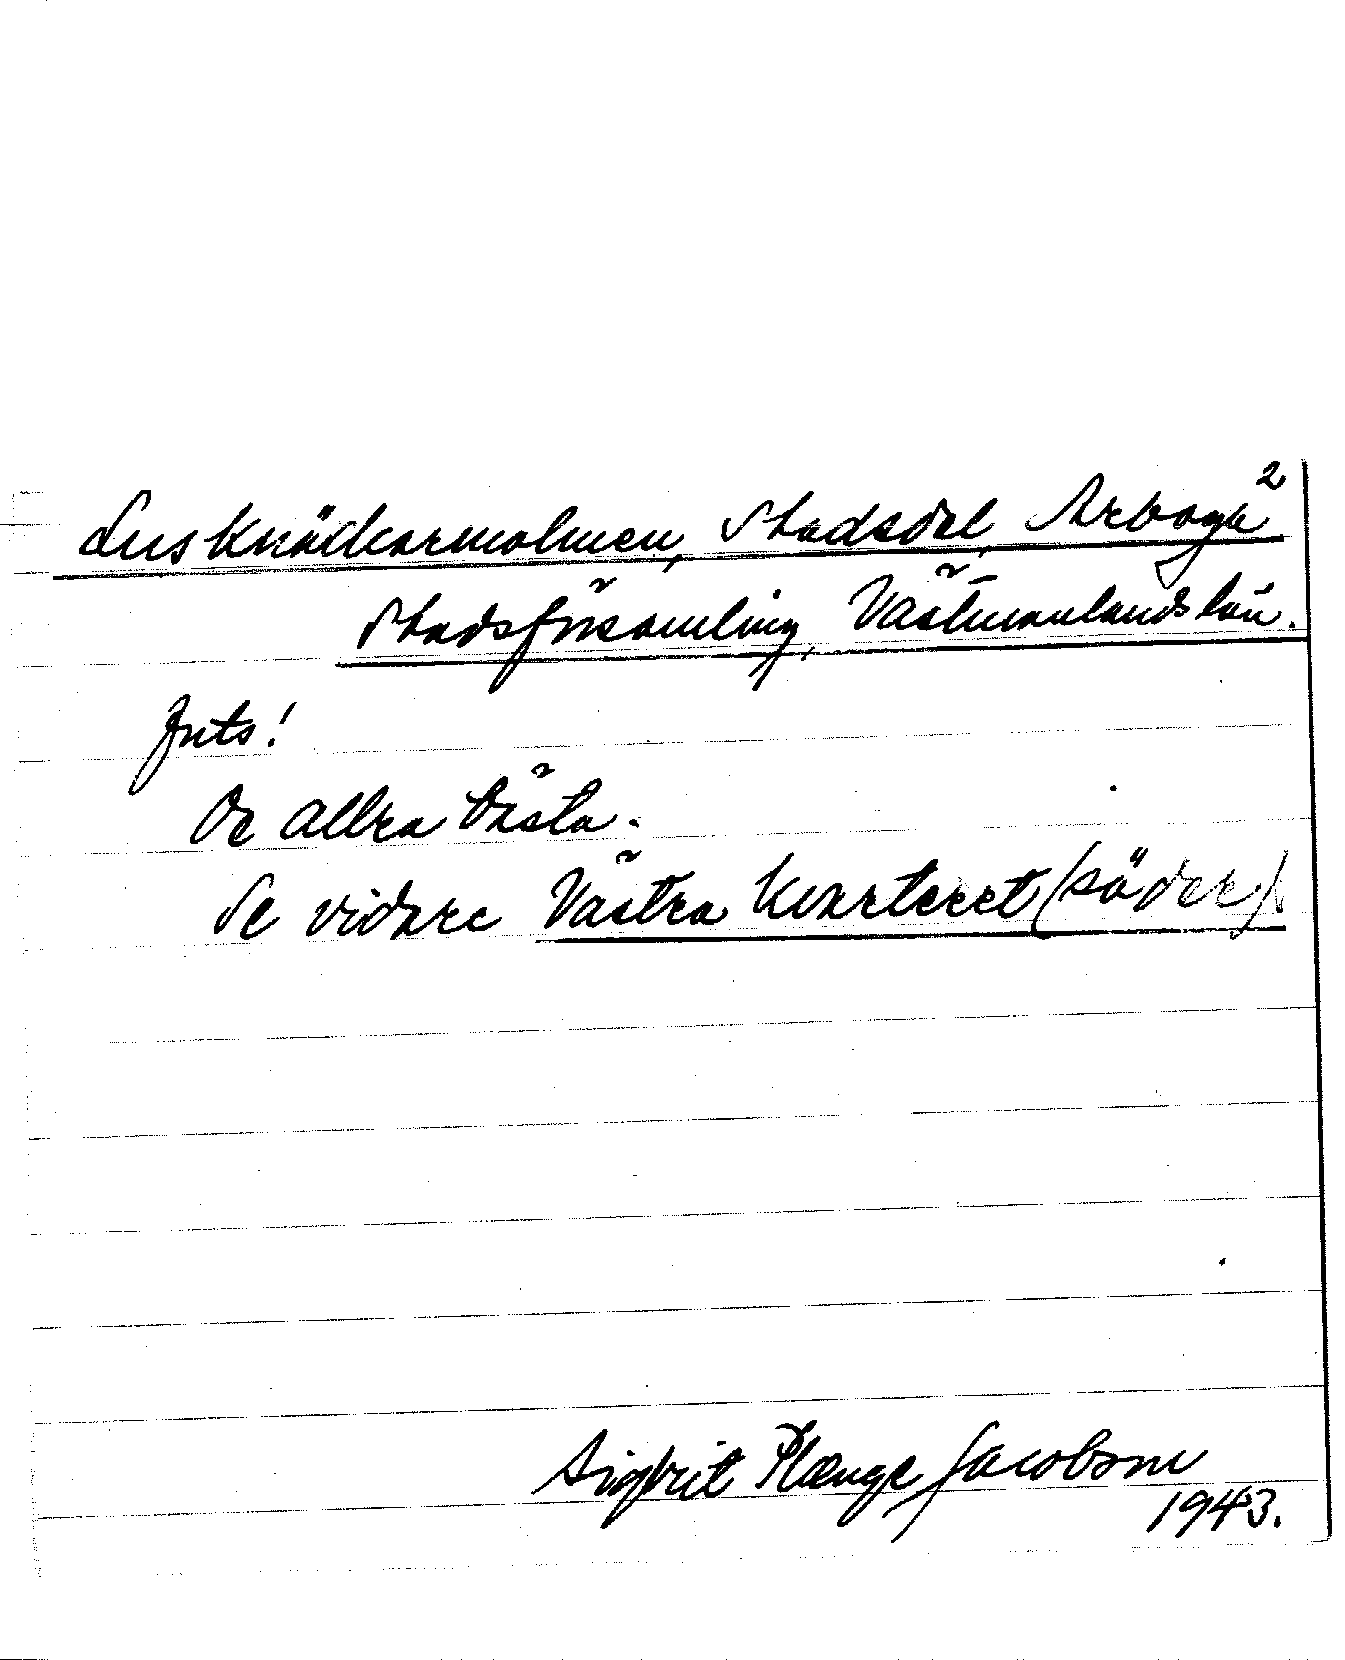 Lusknäckarmalmen, Stadsdel, Arboga 2
Stadsförsamling, Västmanlands län.
Juts!
De allra bästa.
Se vidare Västra Kvarteret (söder).
Sigbrit Plænge Jacobson
1943.